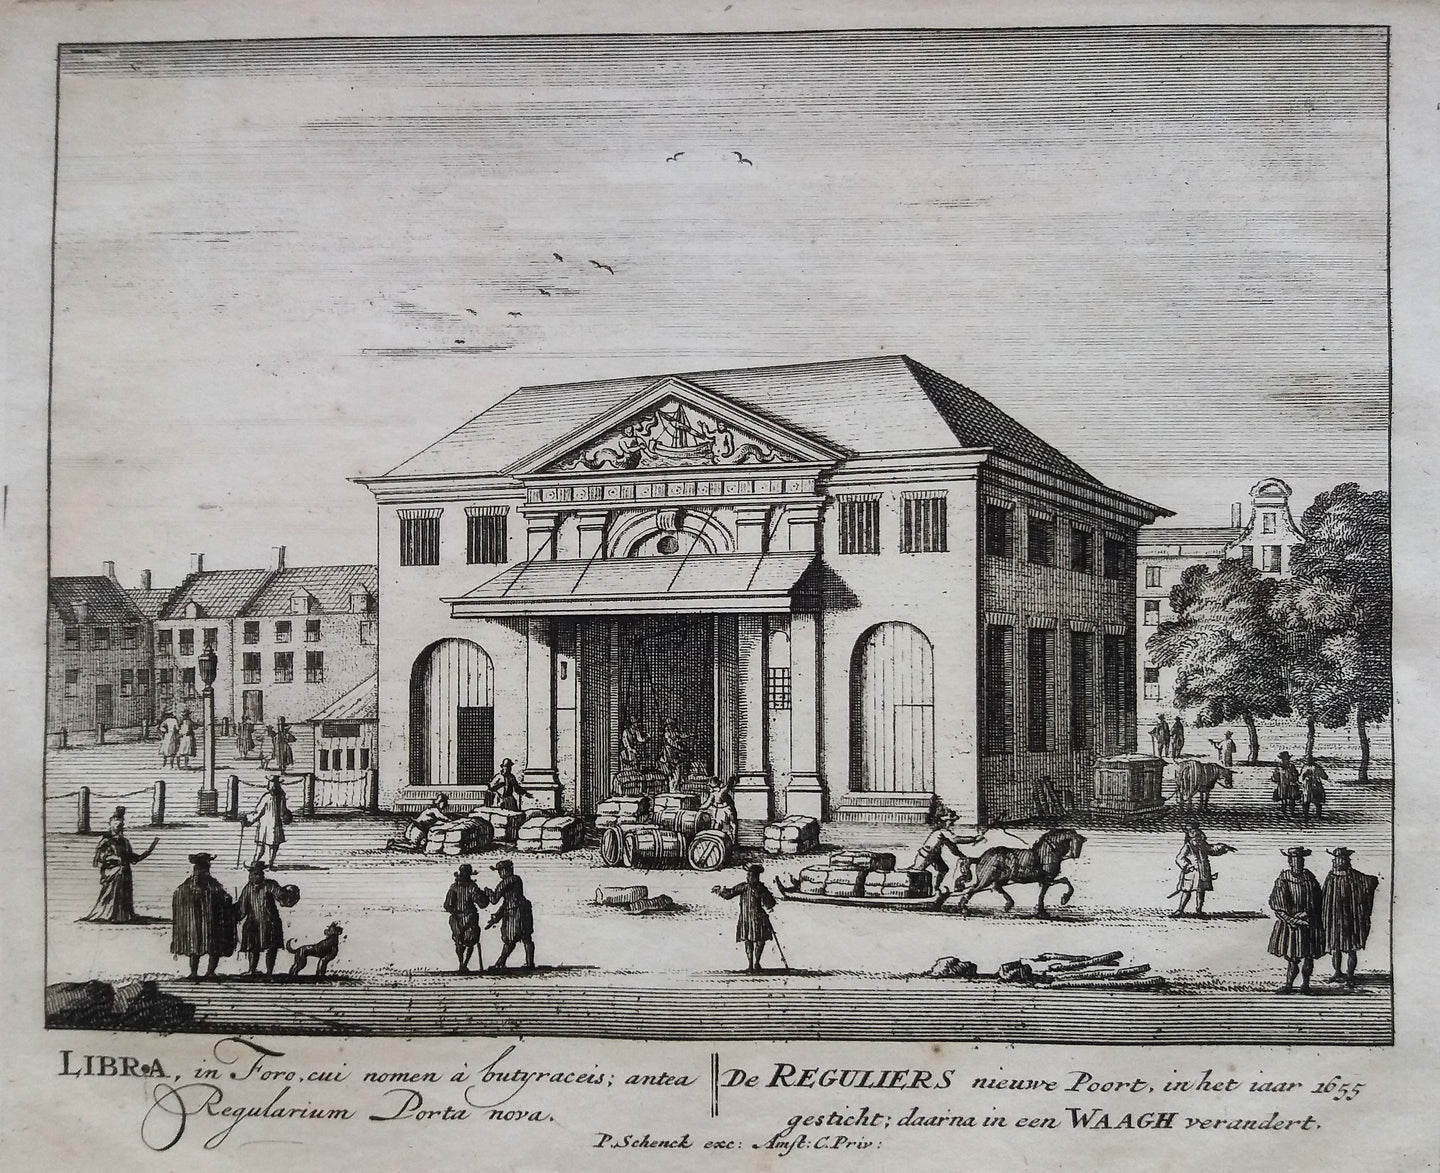 LIBRA, in Foro, cui nomen à butyraceis; antea
Regularium Porta nova.
De REGULIERS nieuwe Poort, in het iaar 1655
gesticht; daarna in een WAAGH verandert.
P. Schenck exc: Amst: C. Priv: